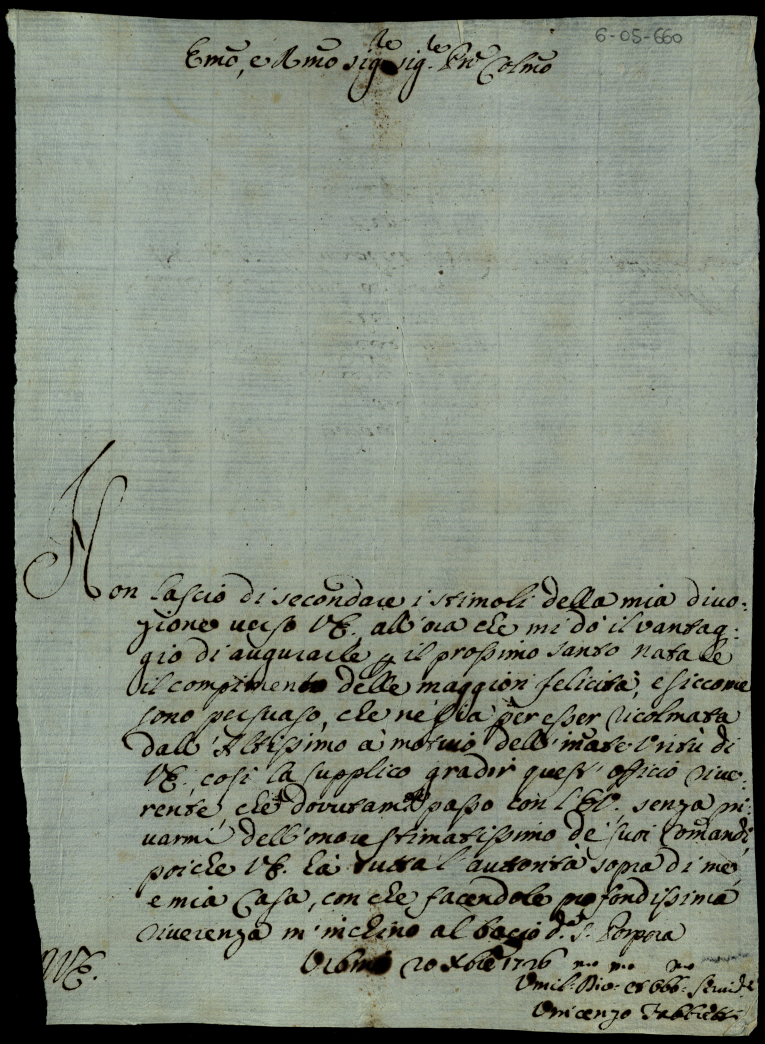 6-05-660
Emo, e Rmo Sig.re Sig.re Prne Colmo
Non lascio di secondare i stimoli della mia divo-
zione verso V.E. all'ora che mi dò il vantag-
gio di augurarle p il prossimo santo natale
il compimento delle maggiori felicità, e siccome
sono persuaso, che ne sia per esser ricolmata
dall'Altissimo à motivo dell'innate virtù di
V.E., così la supplico gradir quest'officio rive-
rente, che dovutamte passo con l'E.V. senza pri-
varmi dell'onore stimatissimo de suoi Comandi,
poiche V.E. hà tutta l'auttorità sopra di me,
e mia Casa, con che facendole profondissima
riverenza m'inchino al bacio d.a S. Porpora
Urbino 20 Xbre 1726
V.E.
Umil.mo Div.mo et Obb.mo Servid.e
Vincenzo